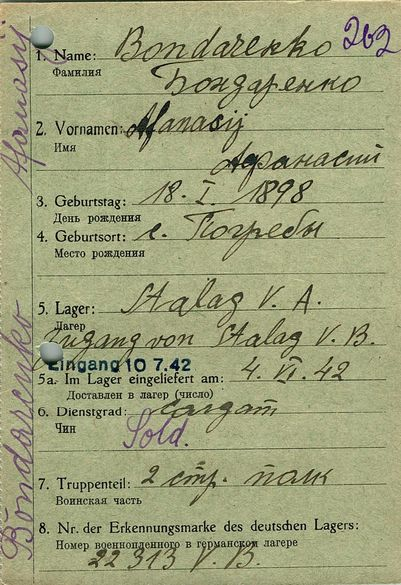 1. Name: Bondarenko 263
Фамилия Бондаренко
2. Vornamen: Afanasij
Имя Афанасий
3. Geburtstag: 18. I. 1898
День рождения
4. Geburtsort: с. Погребы
Место рождения
5. Lager: Stalag V. A.
Лагерь
Zugang von Stalag V. B.
Eingang 10 7.42
5a. Im Lager eingeliefert am: 4. VI. 42
Доставлен в лагер (число)
6. Dienstgrad: солдат
Чин Sold.
7. Truppenteil: 2 стр. полк
Воинская часть
8. Nr. der Erkennungsmarke des deutschen Lagers:
Номер военнопленного в германском лагере
22 313 V. B.
Bondarenko Afanasij